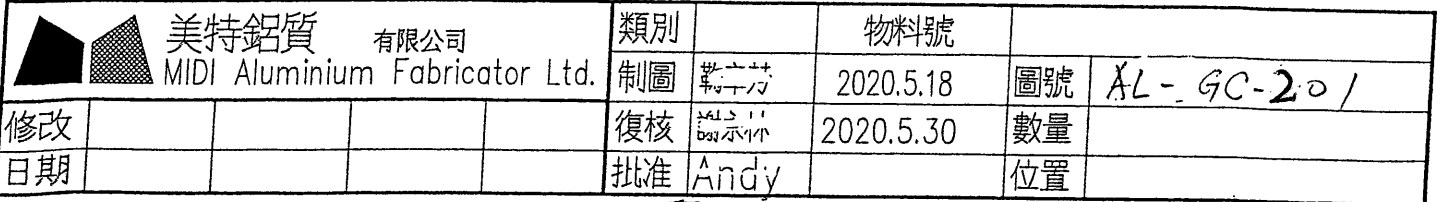 美特鋁質 有限公司
MIDI Aluminium Fabricator Ltd.
類別 物料號
制圖 2020.5.18 圖號 AL-GC-201
修改 復核 2020.5.30 數量
日期 批准 Andy 位置